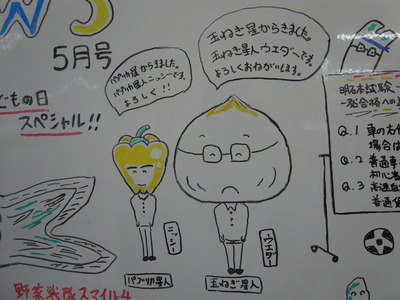 WS
5月号
どもの日
スペシャル!!
パプリカ星からきました。
パプリカ星人ニッシーです。
よろしく!!
玉ねぎ星からきました。
玉ねぎ星人ウエダーです。
よろしくおねがいします。
ニッシー
ウエダー
パプリカ星人
玉ねぎ星人
野菜戦隊スマイル4
明石市試験
一発合格への
Q.1 車の右
場合は
Q.2 普通車
初心者
Q.3 高速自
普通貨